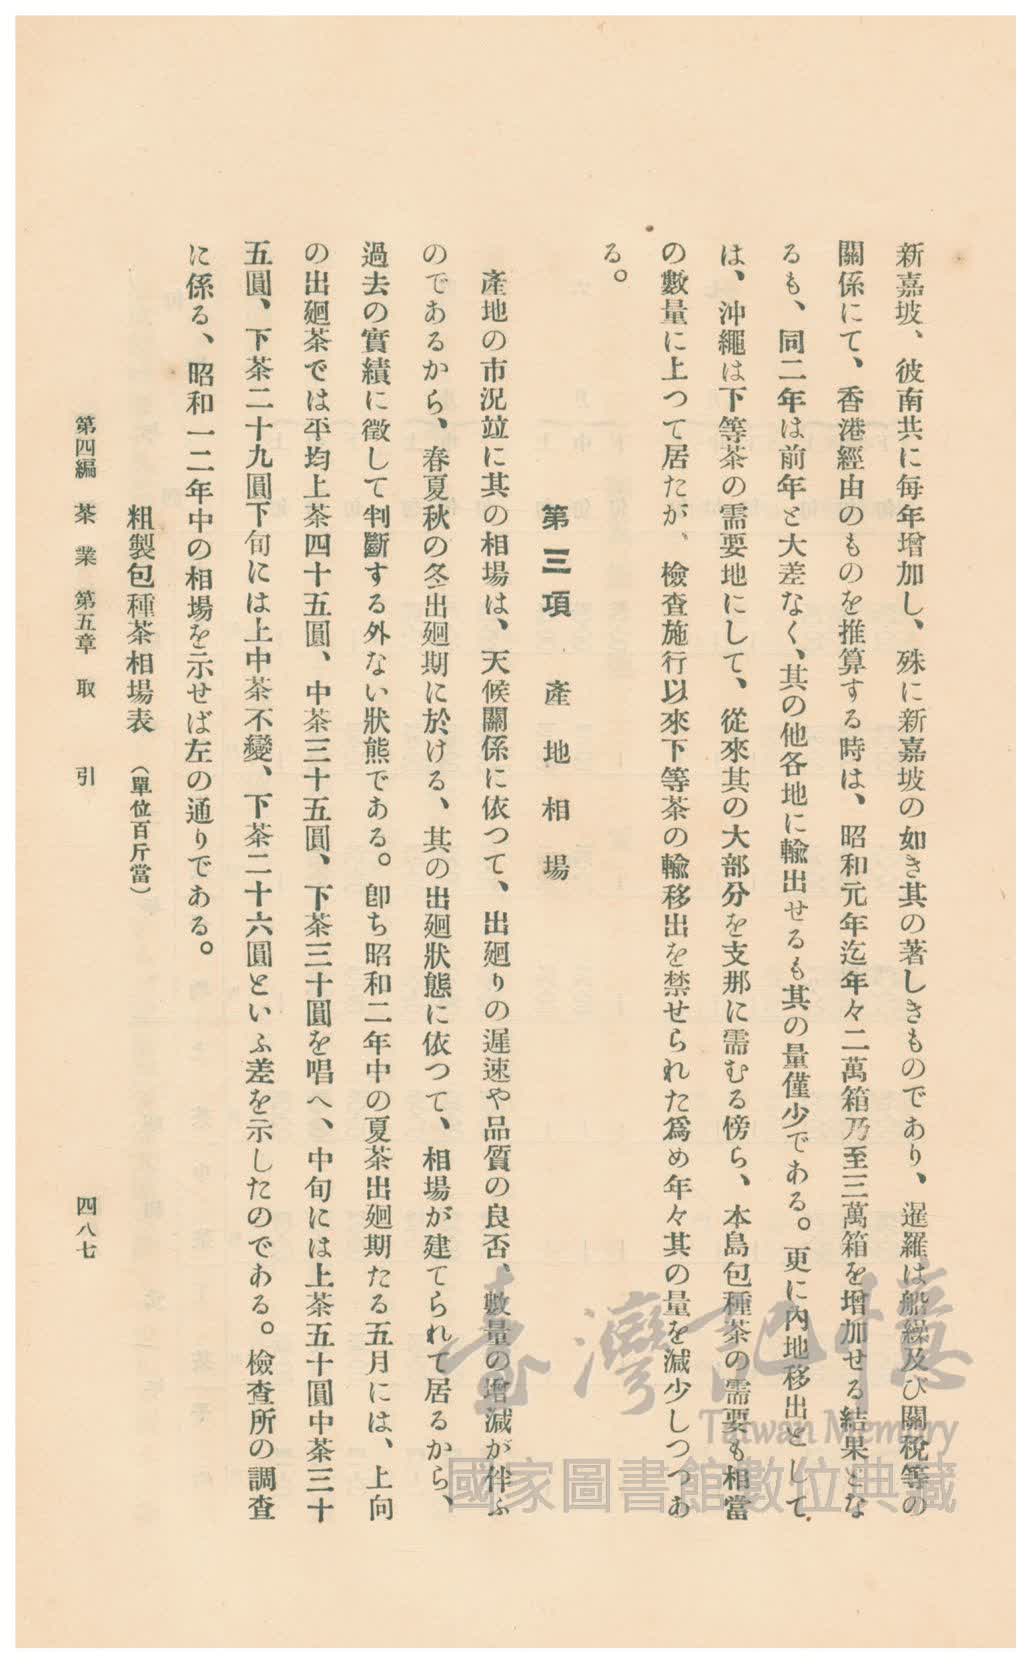 新嘉坡、彼南共に每年增加し、殊に新嘉坡の如き其の著しきものであり、暹羅は船繰及び關稅等の
關係にて、香港經由のものを推算する時は、昭和元年迄年々二萬箱乃至三萬箱を增加せる結果とな
るも、同二年は前年と大差なく、其の他各地に輸出せるも其の量僅少である。更に內地移出として
は、沖繩は下等茶の需要地にして、從來其の大部分を支那に需むる傍ら、本島包種茶の需要も相當
の數量に上つて居たが、檢查施行以來下等茶の輸移出を禁せられた爲め年々其の量を減少しつつあ
る。
第三項 產地相場
產地の市況竝に其の相場は、天候關係に依つて、出廻りの遲速や品質の良否、數量の增減が伴ふ
のであるから、春夏秋の冬出廻期に於ける、其の出廻狀態に依つて、相場が建てられて居るから、
過去の實績に徵して判斷する外ない狀熊である。卽ち昭和二年中の夏茶出廻期たる五月には、上向
の出廻茶では平均上茶四十五圓、中茶三十五圓、下茶三十圓を唱へ、中旬には上茶五十圓中茶三十
五圓、下茶二十九圓下旬には上中茶不變、下茶二十六圓といふ差を示したのである。檢查所の調查
に係る、昭和一二年中の相場を示せば左の通りである。
粗製包種茶相場表 (單位百斤當)
第四編 茶業 第五章 取引 四八七
臺灣記憶
Taiwan Memory
國家圖書館數位典藏